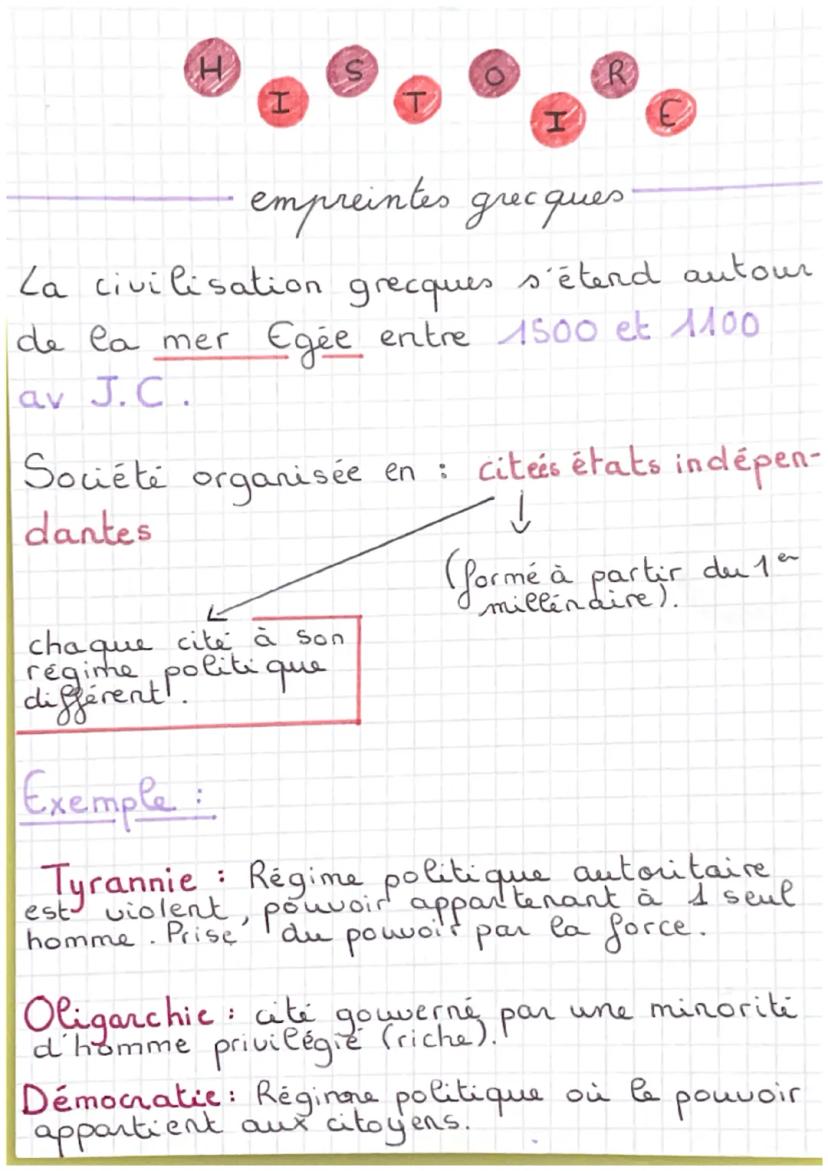 HISTOIRE
empreintes grecques
La civilisation grecques s'étend autour
de la mer Egée entre 1500 et 1100
av J.C.
Société organisée en : citeés états indépen-
dantes
(formé à partir du 1er
millénaire).
chaque cité à son
régime politique
différent.
Exemple :
Tyrannie : Régime politique autoritaire
est violent, pouvoir appartenant à 1 seul
homme. Prise du pouvoir par la force.
Oligarchie : cité gouverné par une minorité
d'homme privilégié (riche).
Démocratie : Régime politique où le pouvoir
appartient aux citoyens.